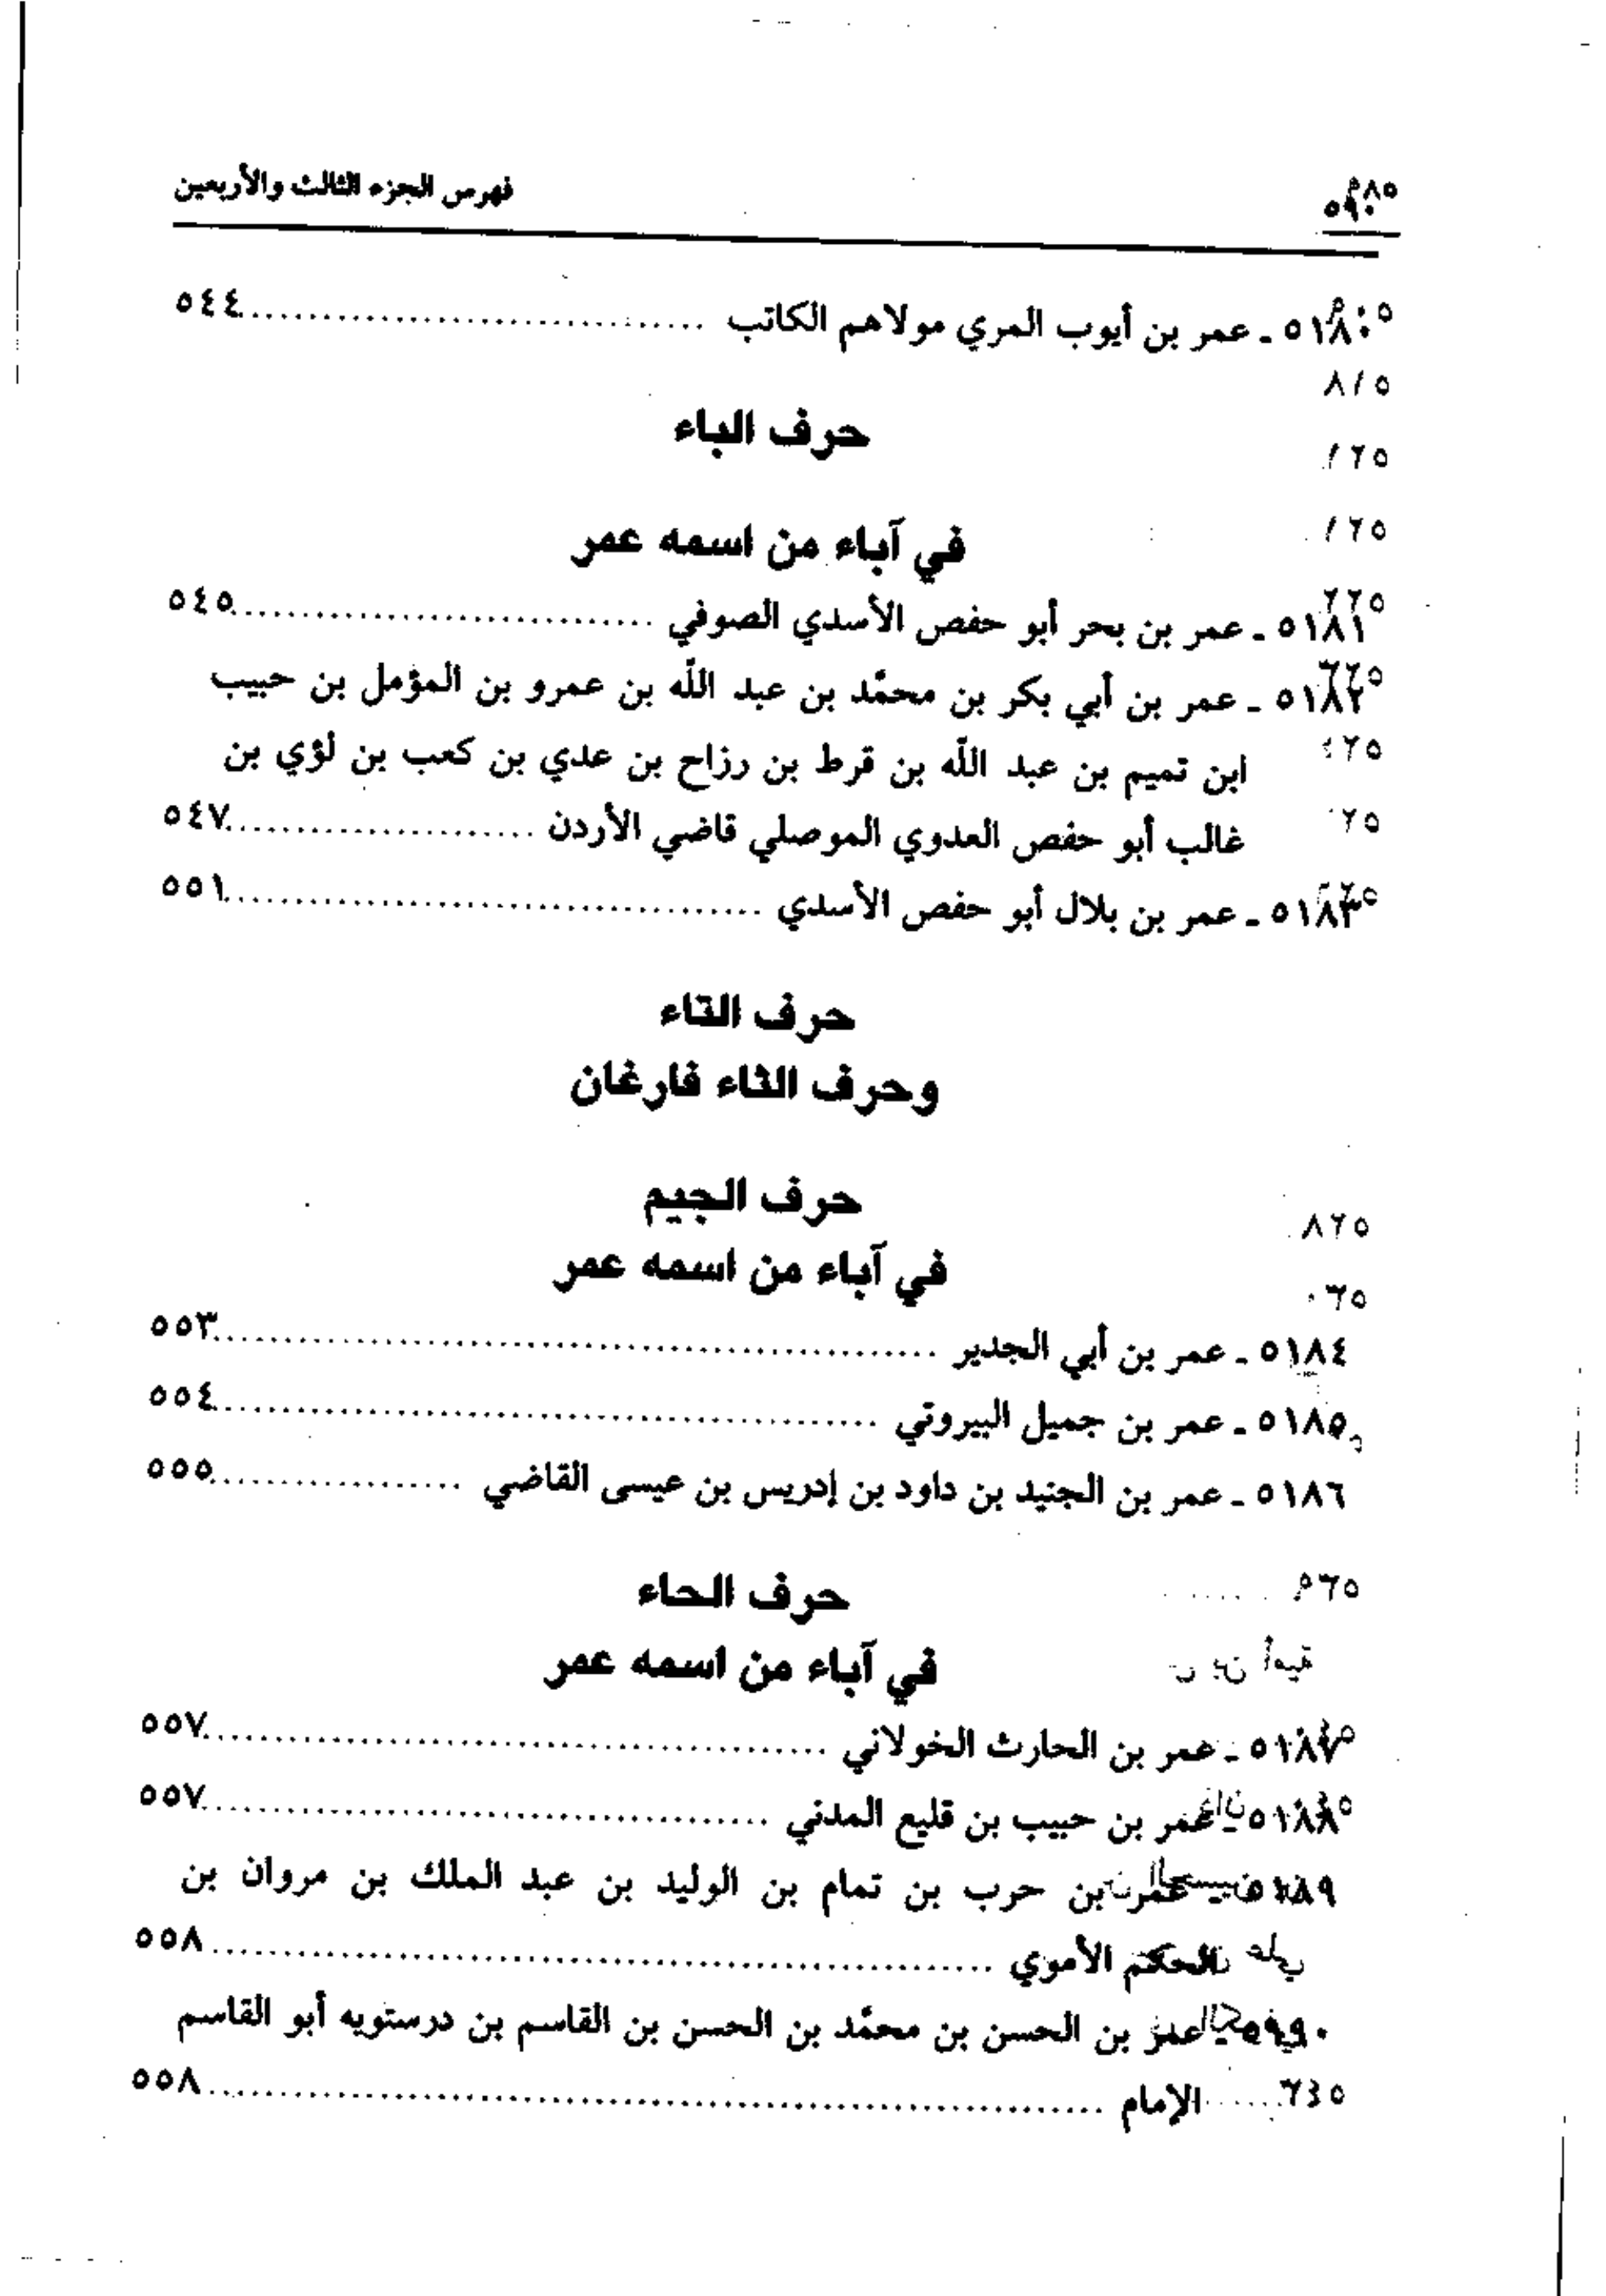 ٥٩٠ فهرس الجزء الثالث والأربعين
٥١٨٠ ـ عمر بن أيوب المري مولاهم الكاتب ................ ٥٤٤
حرف الباء
في آباء من اسمه عمر
٥١٨١ ـ عمر بن بحر أبو حفص الأسدي الصوفي ................ ٥٤٥
٥١٨٢ ـ عمر بن أبي بكر بن محمّد بن عبد اللّه بن عمرو بن المؤمل بن حبيب
ابن تميم بن عبد اللّه بن قرط بن رزاح بن عدي بن كعب بن لؤي بن
غالب أبو حفص العدوي الموصلي قاضي الأردن ................ ٥٤٧
٥١٨٣ ـ عمر بن بلال أبو حفص الأسدي ................ ٥٥١
حرف التاء
وحرف الثاء فارغان
حرف الجيم
في آباء من اسمه عمر
٥١٨٤ ـ عمر بن أبي الجدير ................ ٥٥٣
٥١٨٥ ـ عمر بن جميل البيروتي ................ ٥٥٤
٥١٨٦ ـ عمر بن الجنيد بن داود بن إدريس بن عيسى القاضي ................ ٥٥٥
حرف الحاء
في آباء من اسمه عمر
٥١٨٧ ـ عمر بن الحارث الخولاني ................ ٥٥٧
٥١٨٨ ـ عمر بن حبيب بن قليع المدني ................ ٥٥٧
٥١٨٩ ـ عمر بن حرب بن تمام بن الوليد بن عبد الملك بن مروان بن
الحكم الأموي ................ ٥٥٨
٥١٩٠ ـ عمر بن الحسن بن محمّد بن الحسن بن القاسم بن درستويه أبو القاسم
الإمام ................ ٥٥٨